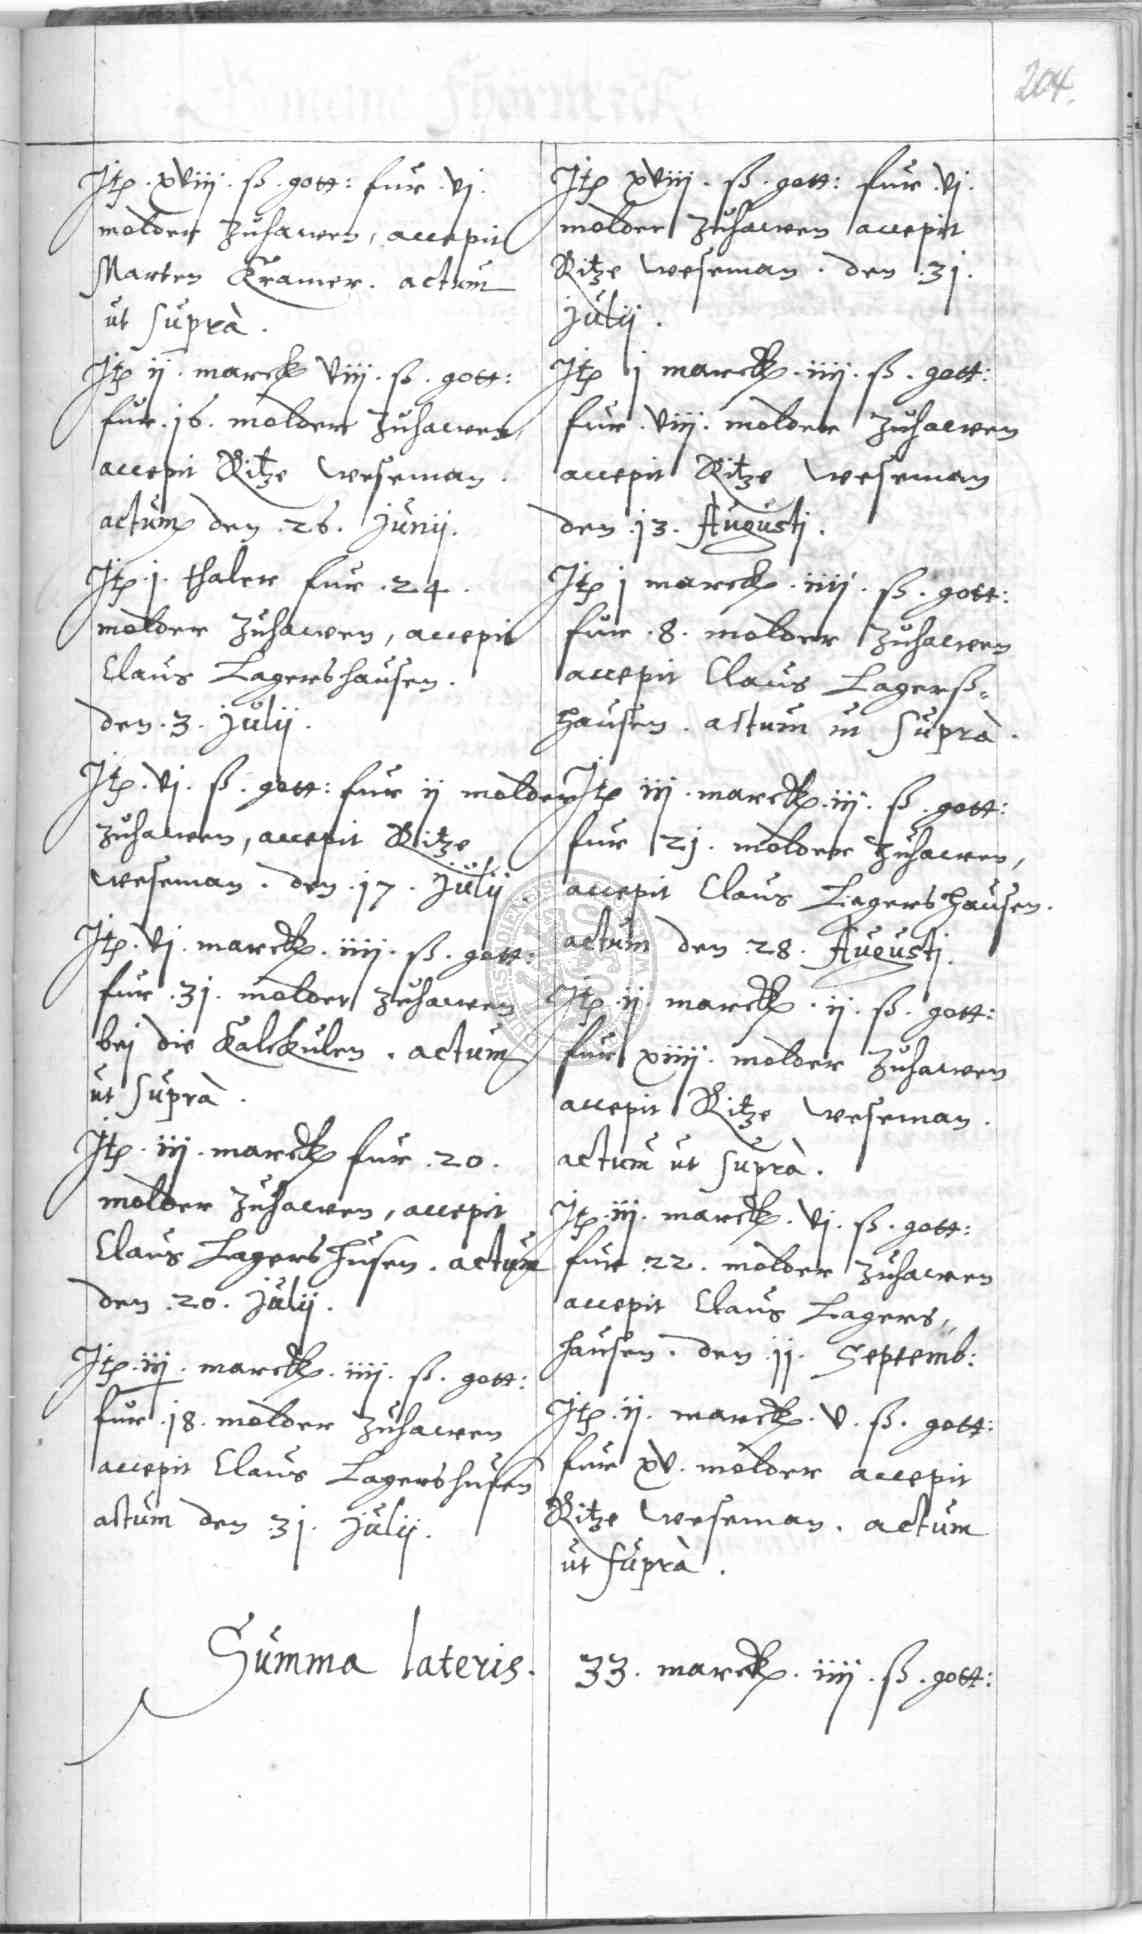 204.
Jtp. xviij. ß. gott: fur. vj.
molder zuhawen, accepit
Marten Kramer. actum
ut suprà.
Jtp ij. marck viij. ß. gott:
fur. 16. molder zuhawen
accepit Ritze weseman.
actum den. 26. Junij.
Jtp. j. thaler fur. 24.
molder zuhawen, accepit
Claus Lagershausen.
den. 3. Julij.
Jtp. vj. ß. gott: fur ij molder
zuhawen, accepit Ritze
weseman. den. 17. Julij.
Jtp. vj. marck. iiij. ß. gott:
fur. 31. molder zuhawen
bej die Kalckulen. actum
ut suprà.
Jtp. iij. marck fur. 20.
molder zuhawen, accepit
Claus Lagershusen. actum
den. 20. Julij.
Jtp. iij. marck. iiij. ß. gott:
fur. 18. molder zuhawen
accepit Claus Lagershusen
actum den. 31. Julij.
Jtp xviij. ß. gott: fur. vj.
molder zuhawen accepit
Ritze weseman. den. 31.
Julij.
Jtp j marck. iiij. ß. gott:
fur. viij. molder zuhawen
accepit Ritze weseman
den. 13. Augustj.
Jtp j marck. iiij. ß. gott:
fur. 8. molder zuhawen
accepit Claus Lagerß-
hausen. actum ut suprà.
Jtp iij. marck. iij. ß. gott:
fur 21. molder zuhawen,
accepit Claus Lagershausen.
actum den. 28. Augustj.
Jtp. ij. marck. ij. ß. gott:
fur xiiij. molder zuhawen
accepit Ritze weseman.
actum ut suprà.
Jtp. iij. marck. vj. ß. gott:
fur. 22. molder zuhawen
accepit Claus Lagers-
hausen. den. 11. Septemb:
Jtp. ij. marck. v. ß. gott:
fur xv. molder accepit
Ritze weseman. actum
ut suprà.
Summa lateris. 33. marck. iiij. ß. gott: